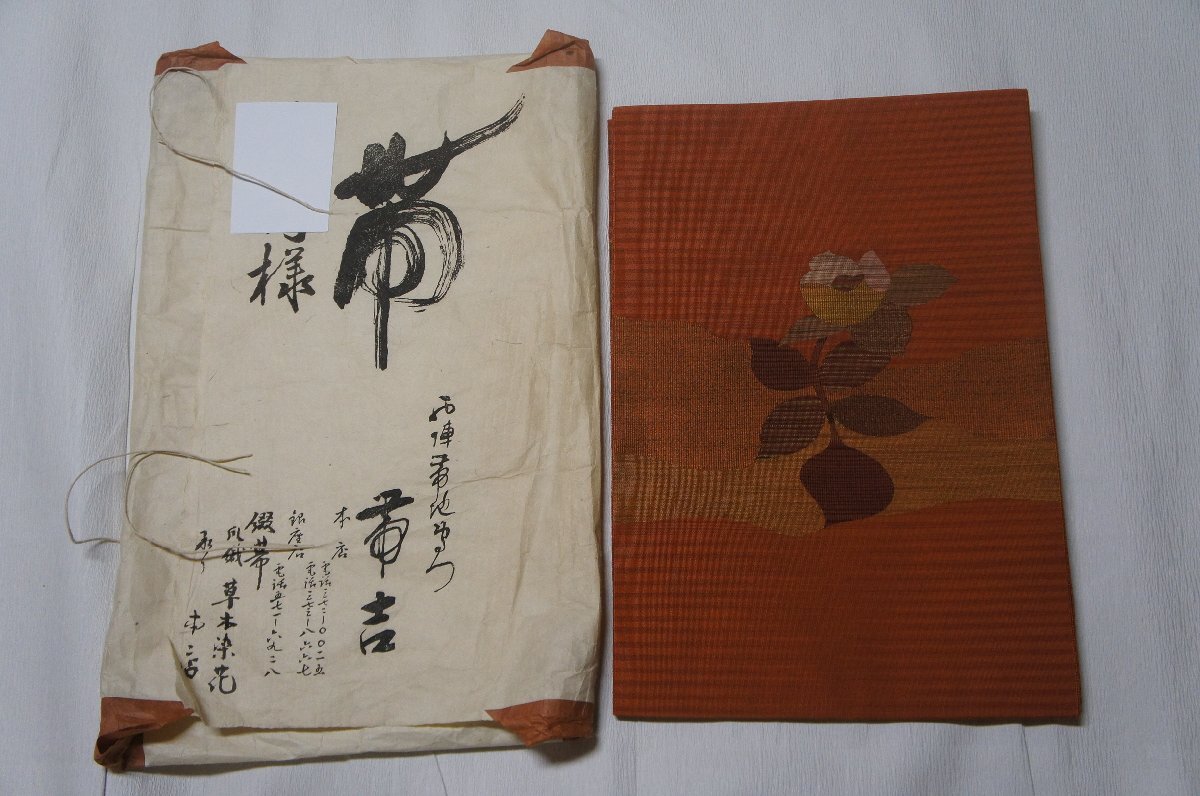 帯
様
西陣帯地専門
帯吉
本店
電話三七二一〇〇二五
電話三七三一八六六七
銀座店
電話五七一一六九二八
綴帯
草木染